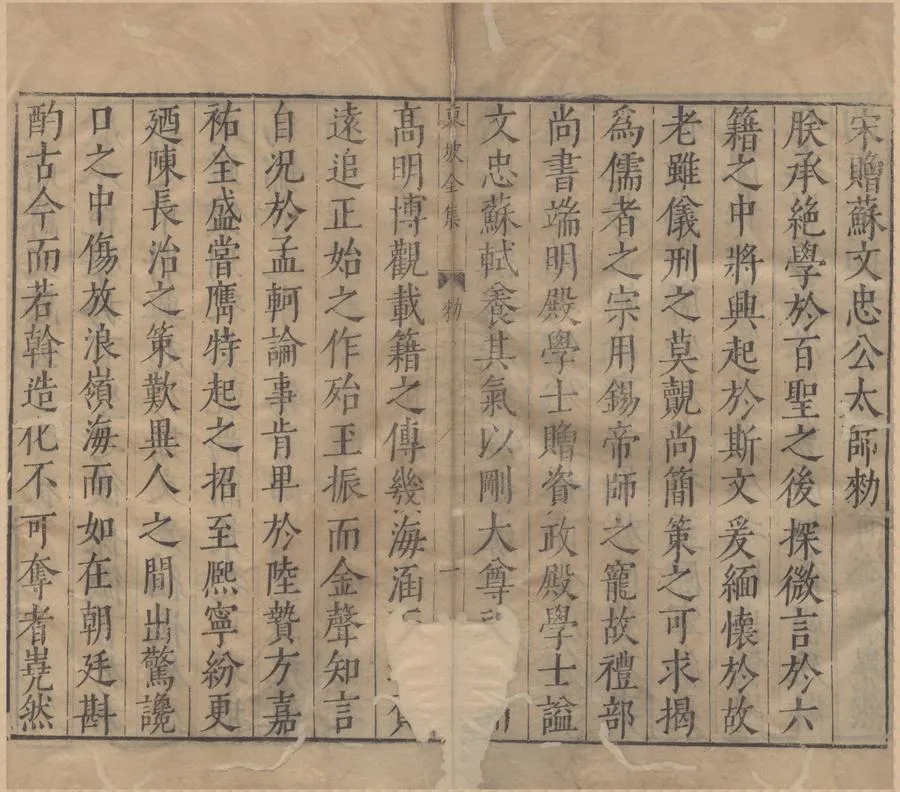 宋贈蘇文忠公太師勑
朕承絕學於百聖之後探微言於六
籍之中將興起於斯文爰緬懷於故
老雖儀刑之莫覿尚簡策之可求揭
爲儒者之宗用錫帝師之寵故禮部
尚書端明殿學士贈資政殿學士謚
文忠蘇軾養其氣以剛大尊
東坡全集 勑 一
高明博觀載籍之傳幾海涵
遠追正始之作殆玉振而金聲知言
自况於孟軻論事肯卑於陸贄方嘉
祐全盛嘗膺特起之招至熙寧紛更
廼陳長治之策歎異人之間出驚讒
口之中傷放浪嶺海而如在朝廷斟
酌古今而若斡造化不可奪者嶤然